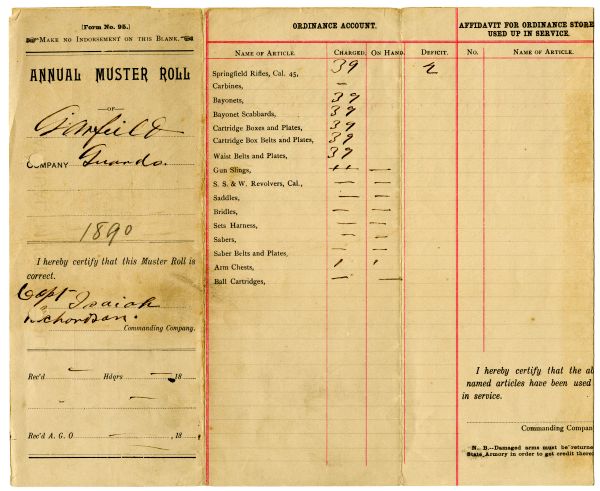 (Form No. 95.)
Make no Indorsement on this Blank.
ANNUAL MUSTER ROLL
—OF—
Garfield
COMPANY Guards.
1890
I hereby certify that this Muster Roll is
correct.
Capt Isaiah
Richardson.
Commanding Company.
Rec'd — Hdqrs — , 18
Rec'd A. G. O — , 18
ORDINANCE ACCOUNT.
Name of Article. Charged. On Hand. Deficit.
Springfield Rifles, Cal. 45, 39
Carbines, —
Bayonets, 39
Bayonet Scabbards, 39
Cartridge Boxes and Plates, 39
Cartridge Box Belts and Plates, 39
Waist Belts and Plates, 39
Gun Slings, —
S. S. & W. Revolvers, Cal., — —
Saddles, — —
Bridles, — —
Sets Harness, — —
Sabers, — —
Saber Belts and Plates, — —
Arm Chests, 1 1
Ball Cartridges, — —
AFFIDAVIT FOR ORDINANCE STORE
USED UP IN SERVICE.
No. Name of Article.
I hereby certify that the ab
named articles have been used
in service.
Commanding Compan
N. B.—Damaged arms must be returne
State Armory in order to get credit there